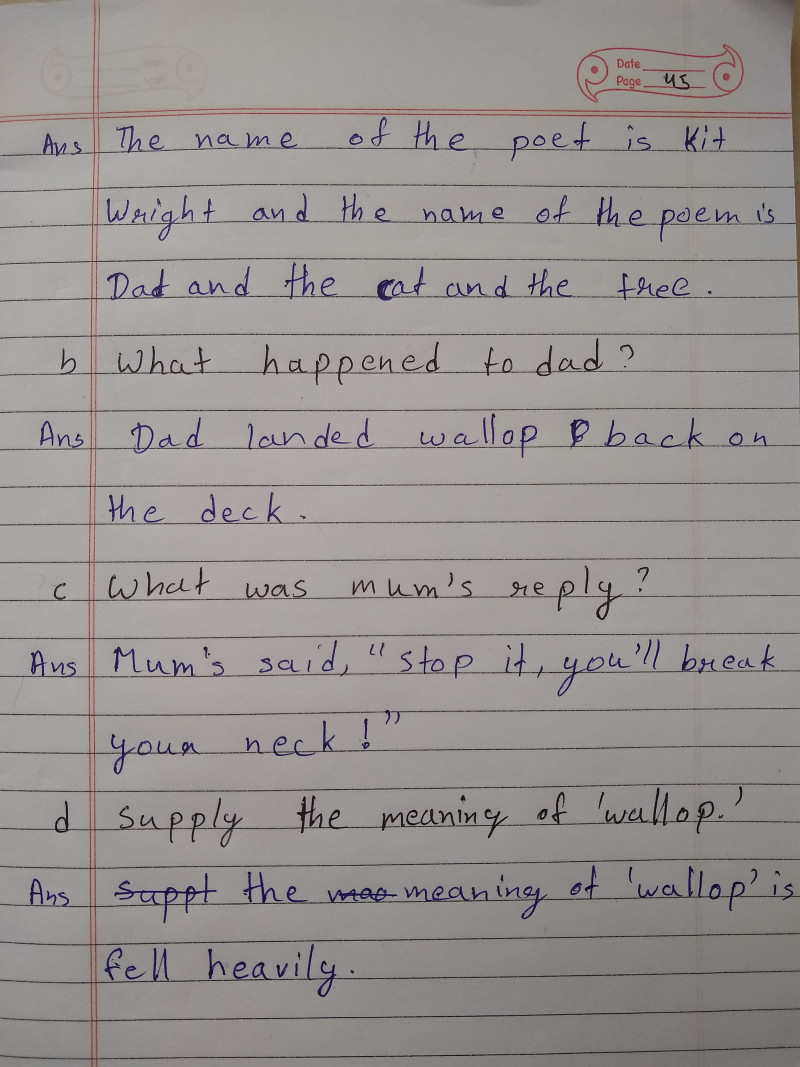 Date
Page 45
Ans The name of the poet is Kit
Wright and the name of the poem is
Dad and the cat and the tree.
b What happened to dad?
Ans Dad landed wallop back on
the deck.
c What was mum's reply?
Ans Mum's said, "stop it, you'll break
your neck!"
d Supply the meaning of 'wallop.'
Ans the meaning of 'wallop' is
fell heavily.